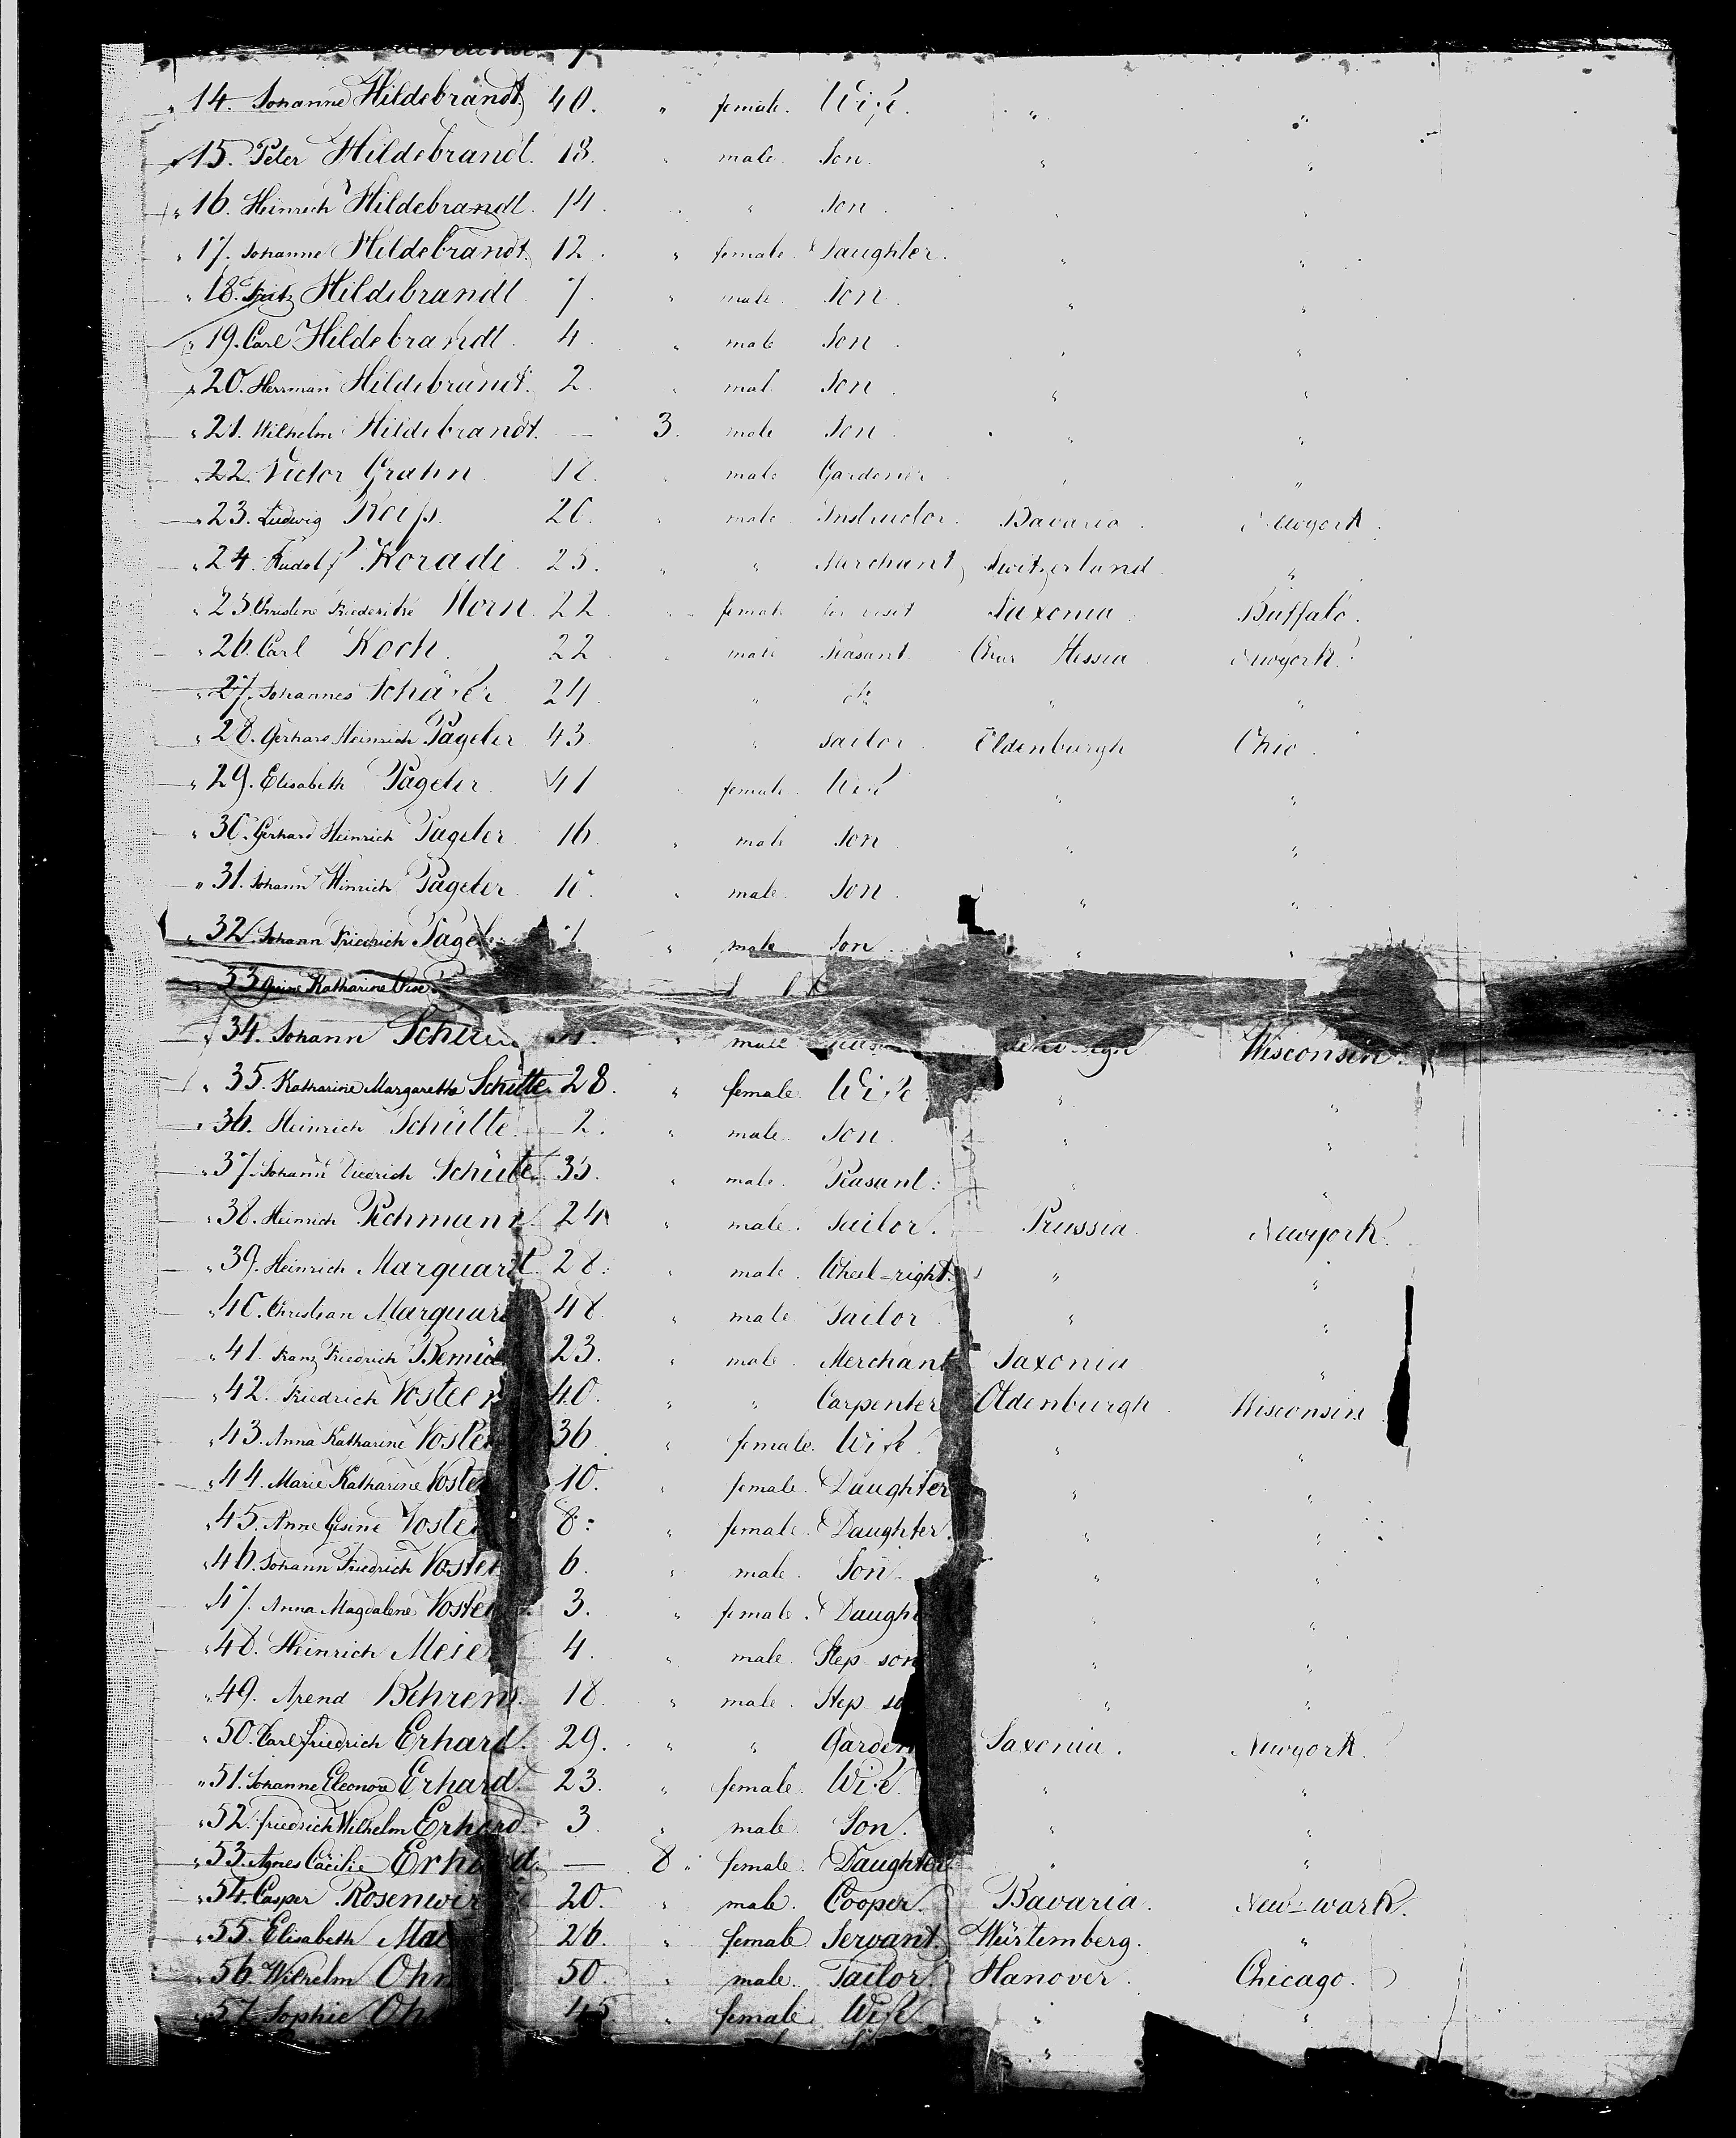 „ 14. Johanne Hildebrandt 40. „ female. Wife. „ „
15. Peter Hildebrandt. 18. „ male Son. „ „
„ 16. Heinrich Hildebrandt. 14. „ „ Son. „ „
„ 17. Johanne Hildebrandt. 12. „ female. Daughter. „ „
„ 18. Fritz Hildebrandt 7. „ male. Son. „ „
„ 19. Carl Hildebrandt. 4. „ male Son. „ „
„ 20. Herrman Hildebrandt. 2. „ mal Son. „ „
„ 21. Wilhelm Hildebrandt. — 3. male Son. „ „
„ 22. Victor Grahn „ male Gardener. „ „
„ 23. Ludwig „ male Instructor. Bavaria. Newyork.
„ 24. Rudolf Koradi. 25. „ „ Merchant, Switzerland. „
„ 25. Christine Friederike Horn. 22. „ female for visit Saxonia. Buffalo.
„ 26. Carl Koch. 22 „ male Peasant Chur Hessia Newyork.
„ 27. Johannes Schäfer 24 „ do „ „
„ 28. Gerhard Heinrich Pageler. 43. „ Sailor. Oldenburgh Ohio.
„ 29. Elisabeth Pageler. 41 female. Wife „ „
„ 30. Gerhard Heinrich Pageler 16. „ male Son „ „
„ 31. Johann Hinrich Pageler. „ male. Son. „ „
„ 32. Johann Friedrich Pagel „ male Son. „ „
„ 33. Katharine
34. Johann „ male Wisconsin.
„ 35. Katharine Margarethe Schütte. 28. „ female. Wife „ „
„ 36. Heinrich Schütte. 2. „ male. Son. „ „
„ 37. Johann Diedrich Schütte. 35. „ male. Peasant. „ „
„ 38. Heinrich 24 „ male. Sailor. Prussia. Newyork.
„ 39. Heinrich Marquardt 28. „ male. Wheel-right. „ „
„ 40. Christian Marquar 48. „ male Sailor „ „
„ 41. Franz Friedrich 23. „ male. Merchant Saxonia „
„ 42. Friedrich Vosteen 40. „ „ Carpenter Oldenburgh Wisconsin
„ 43. Anna Katharine Voste 36. „ female. Wife. „ „
„ 44. Marie Katharine Voste 10. „ female. Daughter „ „
„ 45. Anne Gesine Voste 8. „ female. Daughter. „ „
„ 46. Johann Friedrich Voste 6. „ male. Son. „ „
„ 47. Anna Magdalene Voste 3. „ female. Daugh „ „
„ 48. Heinrich Meie 4. „ male. Step son „ „
„ 49. Arend Behrens. 18. „ male. Step so „ „
„ 50. Carl friedrich Erhard. 29. „ „ Garden Saxonia. Newyork.
„ 51. Johanne Eleonora Erhard. 23. „ female. Wife. „ „
„ 52. friedrich Wilhelm Erhard. 3. „ male. Son. „ „
„ 53. Agnes Cäcilie Erha d. — 8. female. Daughter. „ „
„ 54. Casper Rosenwir 20. „ male. Cooper. Bavaria. New-wark.
„ 55. Elisabeth Ma 26. „ female. Servant. Würtemberg. „
„ 56. Wilhelm Oh 50. „ male. Tailor. Hanover. Chicago.
„ 57. Sophie Oh 45. „ female. Wife. „ „
„